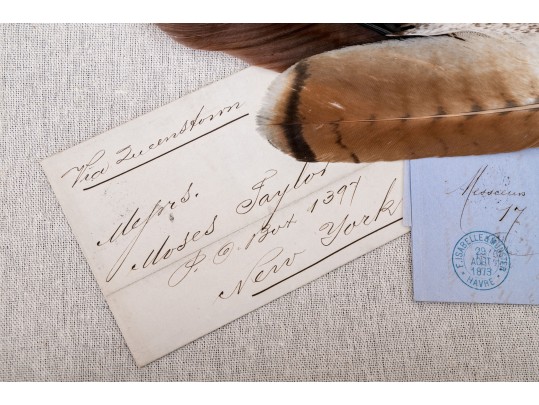 Via Queenstown
Messrs.
Moses Taylor
P. O. Box 1397
New York
Messieurs
17
F. ISABELLE & MUNSTER
23
AOUT
1873
HAVRE